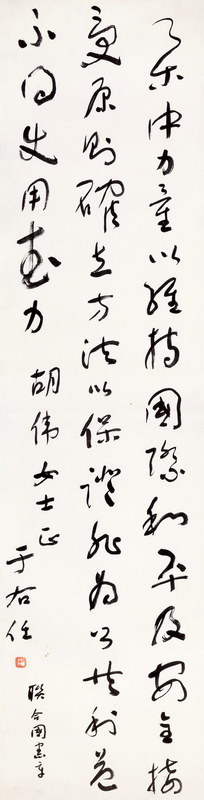 集中力量以維持國際和平及安全接
受原則確立方法以保證非為公共利益
不得使用武力
胡偉女士正
于右任
聯合國憲章